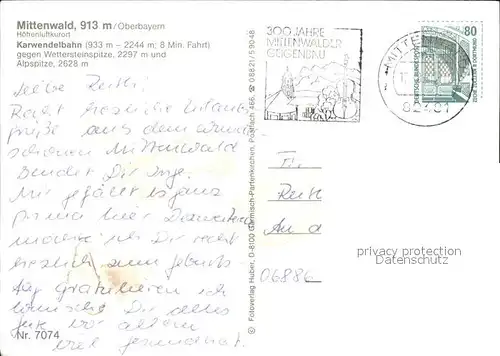 Mittenwald, 913 m / Oberbayern
Höhenluftkurort
Karwendelbahn (933 m – 2244 m; 8 Min. Fahrt)
gegen Wettersteinspitze, 2297 m und
Alpspitze, 2628 m
Liebe Ruth.
Recht herzliche Urlaubs
grüße aus dem
schönen Mittenwald
sendet Dir Inge.
Mir gefällt es ganz
prima hier
möchte ich Dir recht
herzlich zum Geburts
tag gratulieren ich
wünsche Dir alles
gute vor allem
viel gesundheit.
Nr. 7074
© Fotoverlag Huber, D-8100 Garmisch-Partenkirchen, Postfach 466, ☎ 08821/59048
300 JAHRE
MITTENWALDER
GEIGENBAU
MITTE
82481
80
DEUTSCHE BUNDESPOST
Ruth
An d
06886
privacy protection
Datenschutz